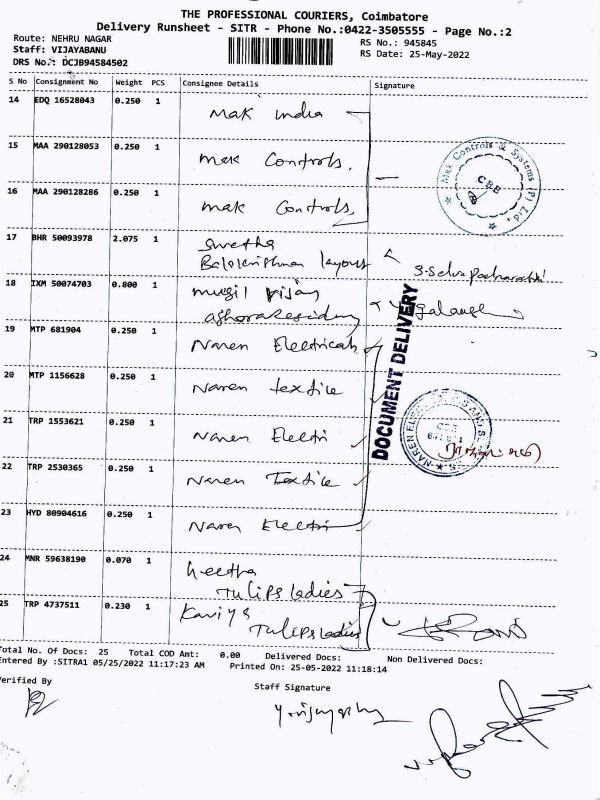 THE PROFESSIONAL COURIERS, Coimbatore
Delivery Runsheet - SITR - Phone No.:0422-3505555 - Page No.:2
Route: NEHRU NAGAR
RS No.: 945845
Staff: VIJAYABANU
RS Date: 25-May-2022
DRS No.: DCJB94584502
S No Consignment No Weight PCS Consignee Details Signature
14 EDQ 16528043 0.250 1 Mak India
15 MAA 290128053 0.250 1 Mak Controls.
16 MAA 290128286 0.250 1 Mak Controls
Mak Controls & Systems (P) Ltd.
CBE
17 BHR 50093978 2.075 1 Swetha
Balakrishnan layout
18 IXM 50074703 0.800 1 mugil vijay
DOCUMENT DELIVERY
19 MTP 681904 0.250 1 Naren Electricals
20 MTP 1156628 0.250 1 Naren textile
21 TRP 1553621 0.250 1 Naren Electri
22 TRP 2530365 0.250 1 Naren Textile
23 HYD 80904616 0.250 1 Naren Electri
24 MNR 59638190 0.070 1 Geetha
Tulips ladies
25 TRP 4737511 0.230 1 Kaviya
Tulips ladies
Total No. Of Docs: 25 Total COD Amt: 0.00 Delivered Docs: Non Delivered Docs:
Entered By :SITRA1 05/25/2022 11:17:23 AM Printed On: 25-05-2022 11:18:14
Verified By
Staff Signature